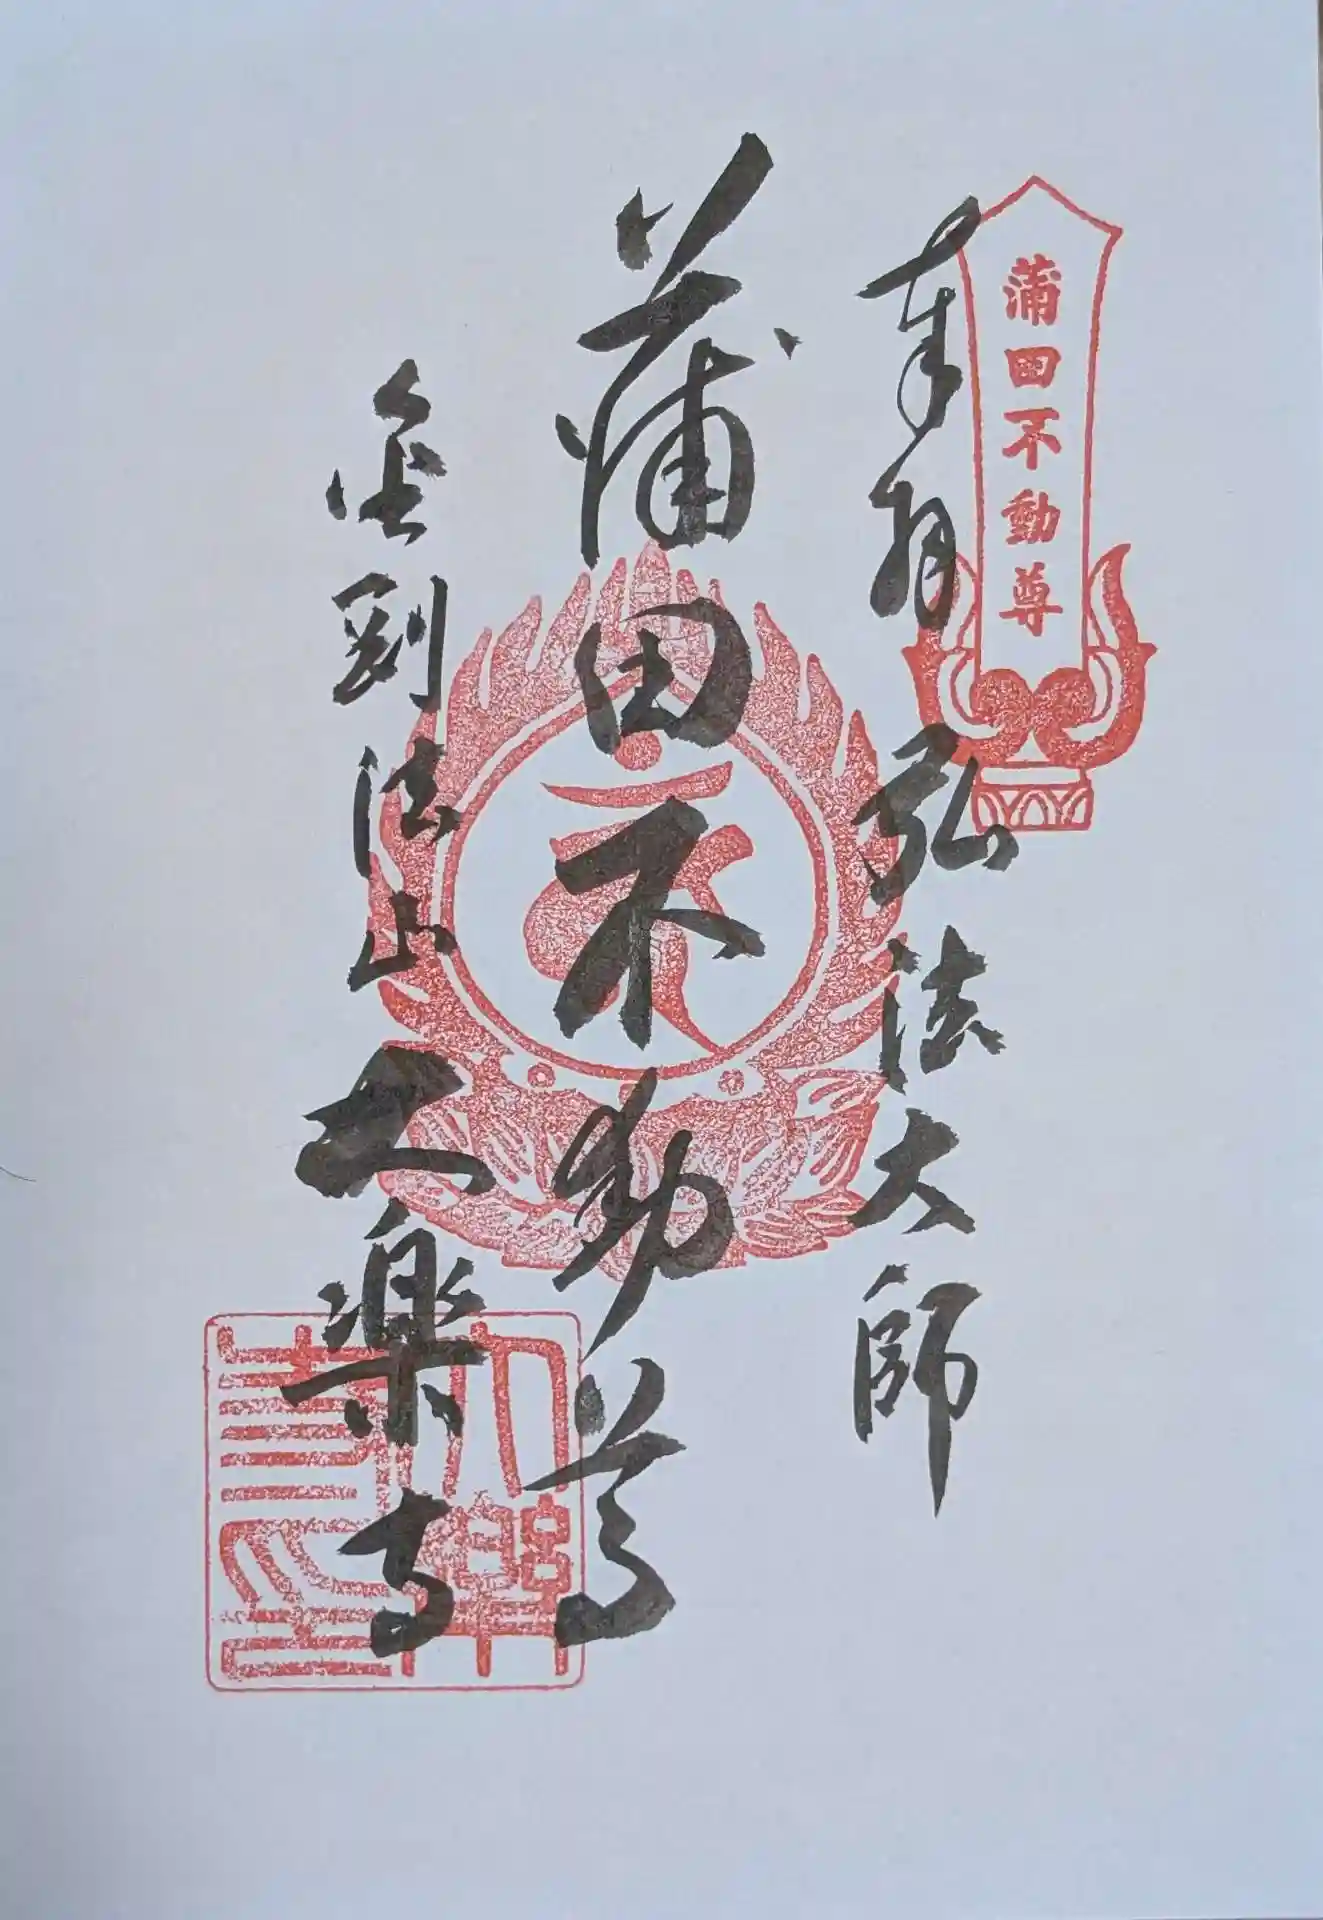 蒲田不動尊
奉拝 弘法大師
蒲田不動尊
金剛法山大楽寺
大樂寺